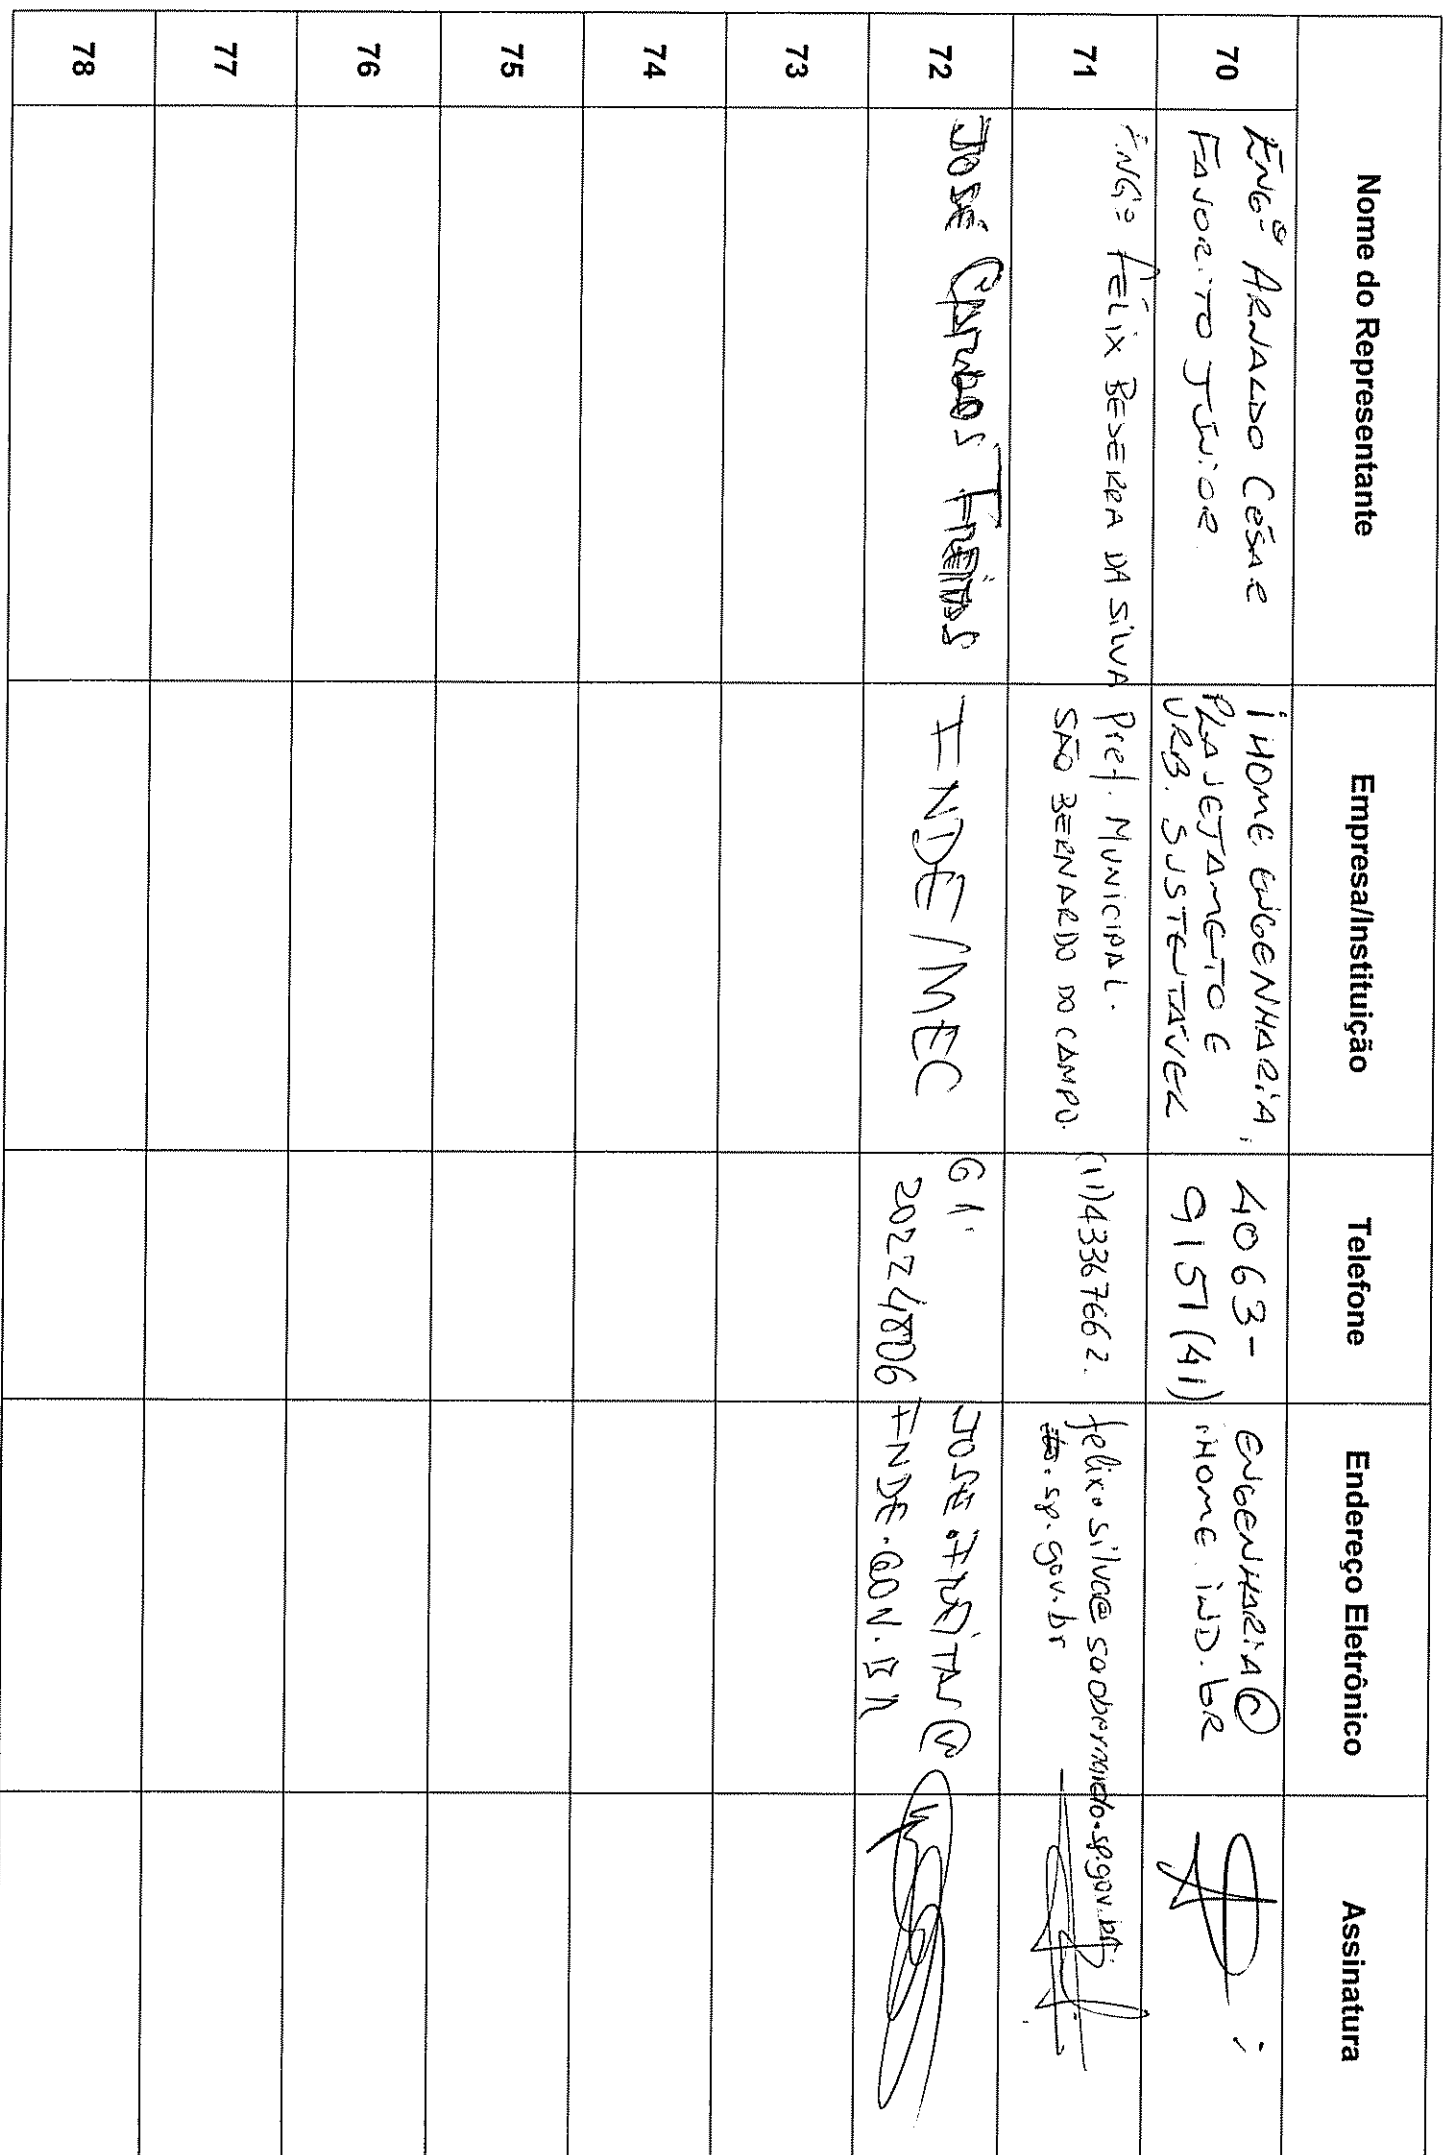 Nome do Representante Empresa/Instituição Telefone Endereço Eletrônico Assinatura
70
ENGº ARNALDO CÉSAR
FAVORITO JÚNIOR.
iHOME ENGENHARIA,
PLAJETAMETO E
URB. SUSTENTÁVEL
4063-
9151 (41)
ENGENHARIA@
iHOME.iND.bR
71
ENGº FÉLIX BESERRA DA SILVA
Pref. MUNICIPAL.
SÃO BERNARDO DO CAMPO.
(11)43367662.
felix.silva@saobernardo.sp.gov.br
.sp.gov.br
72
JOSÉ CARLOS FREITAS
FNDE/MEC
61
20224806
JOSE.FREITAS@
FNDE.GOV.BR
73
74
75
76
77
78